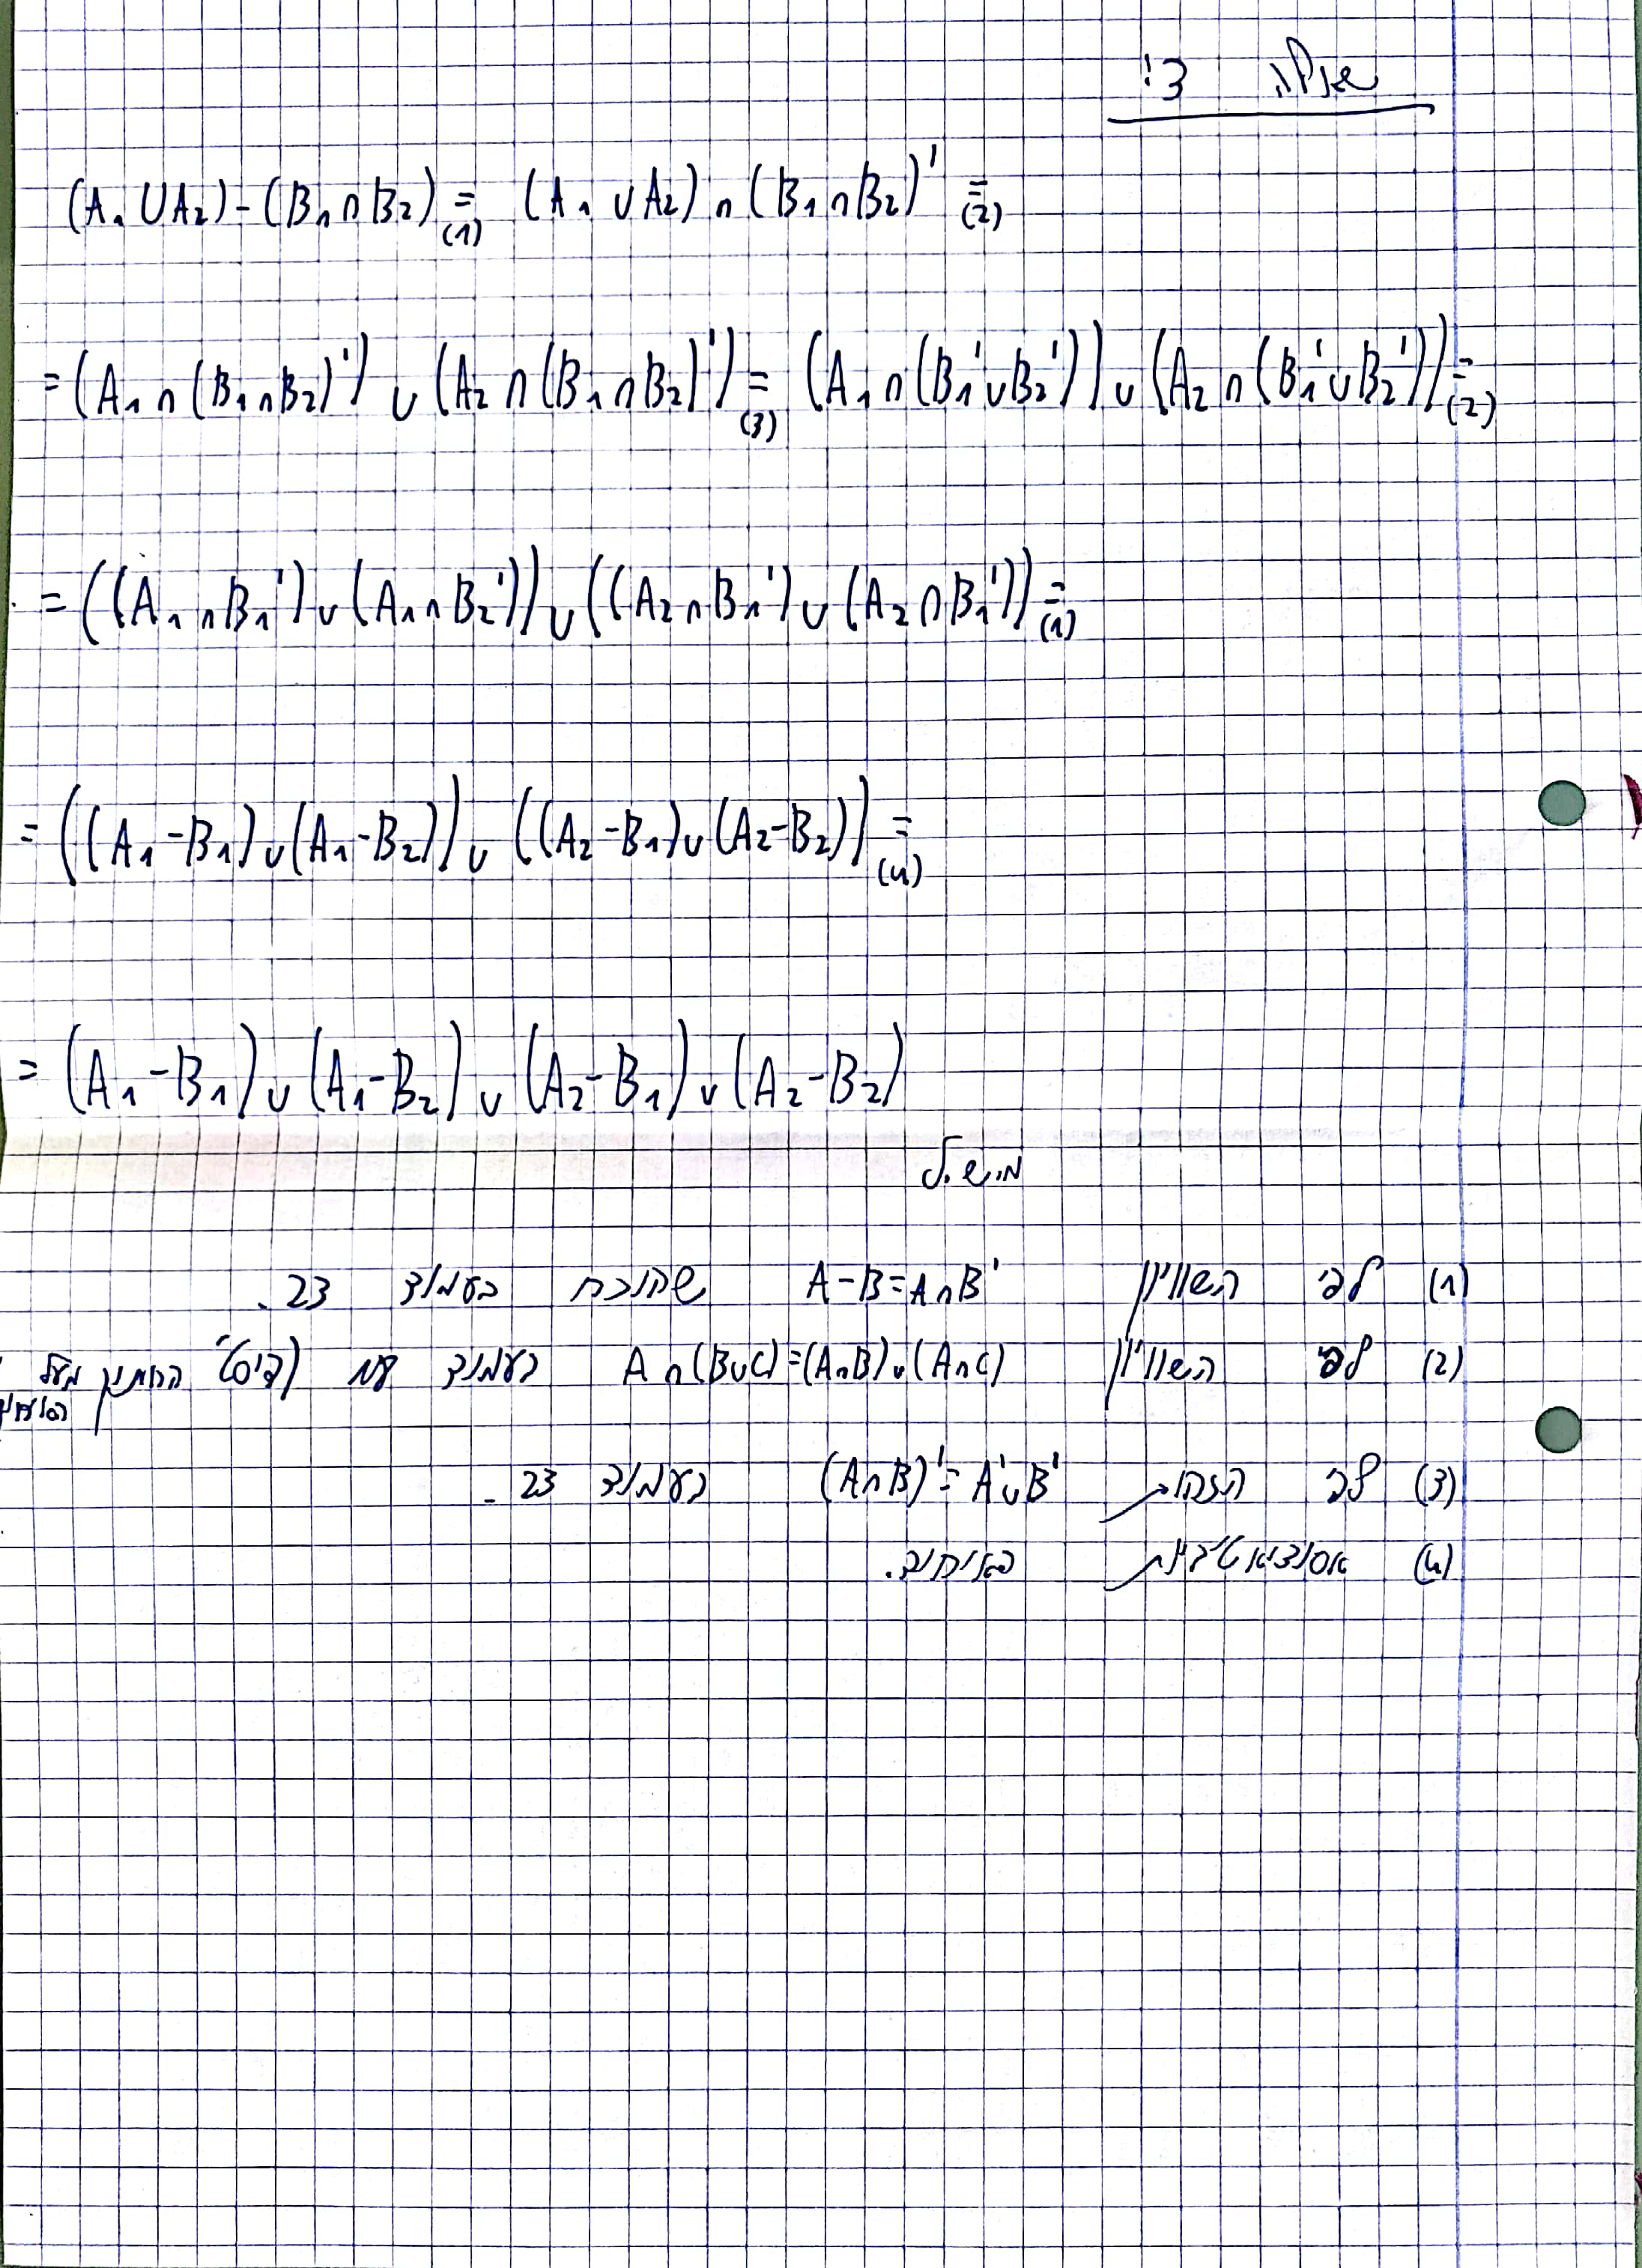 שאלה 3:
(A₁ ∪ A₂) - (B₁ ∩ B₂) =₍₁₎ (A₁ ∪ A₂) ∩ (B₁ ∩ B₂)' =₍₂₎
= (A₁ ∩ (B₁ ∩ B₂)') ∪ (A₂ ∩ (B₁ ∩ B₂)') =₍₃₎ (A₁ ∩ (B₁' ∪ B₂')) ∪ (A₂ ∩ (B₁' ∪ B₂')) =₍₂₎
= ((A₁ ∩ B₁') ∪ (A₁ ∩ B₂')) ∪ ((A₂ ∩ B₁') ∪ (A₂ ∩ B₁')) =₍₁₎
= ((A₁ - B₁) ∪ (A₁ - B₂)) ∪ ((A₂ - B₁) ∪ (A₂ - B₂)) =₍₄₎
= (A₁ - B₁) ∪ (A₁ - B₂) ∪ (A₂ - B₁) ∪ (A₂ - B₂)
מ.ש.ל
(1) לפי השוויון A - B = A ∩ B' שהוכח בעמוד 23.
(2) לפי השוויון A ∩ (B ∪ C) = (A ∩ B) ∪ (A ∩ C) בעמוד התחתון מעל
(3) לפי הזהות (A ∩ B)' = A' ∪ B' בעמוד 23.
(4) אסוציאטיביות האיחוד.